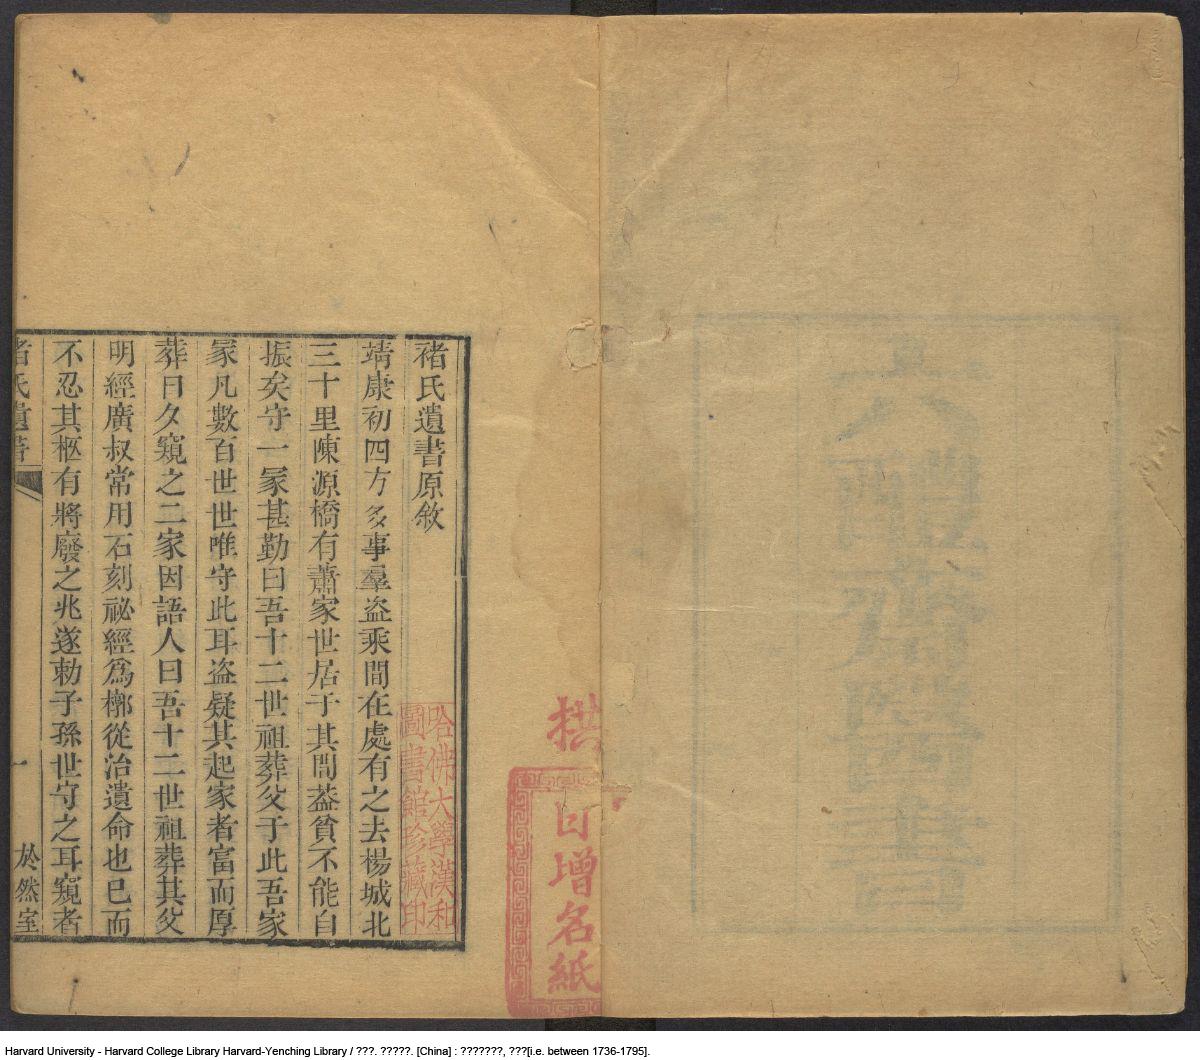 褚氏遺書原敘
靖康初四方多事羣盜乘間在處有之去楊城北
三十里陳源橋有蕭家世居于其間葢貧不能自
振矣守一冢甚勤曰吾十二世祖葬父于此吾家
冢凡數百世世唯守此耳盜疑其起家者富而厚
葬日夕窺之二家因語人曰吾十二世祖葬其父
明經廣叔常用石刻祕經爲槨從治遺命也已而
不忍其柩有將廢之兆遂勅子孫世守之耳窺者
褚氏遺書
一
於然室
哈佛大學漢和
圖書館珍藏印
拱
日增名紙
Harvard University - Harvard College Library Harvard-Yenching Library / ???. ?????. [China] : ???????, ???[i.e. between 1736-1795].